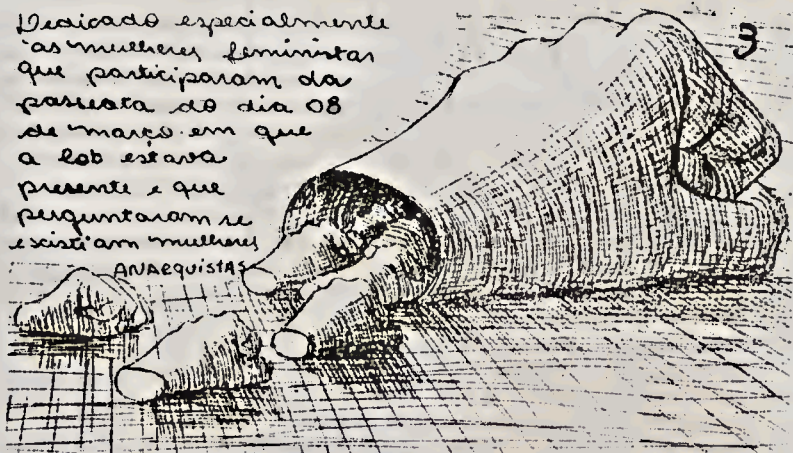 Dedicado especialmente
às mulheres feministas
que participaram da
passeata do dia 08
de março em que
a lob estava
presente e que
perguntaram se
existiam mulheres
ANARQUISTAS
3